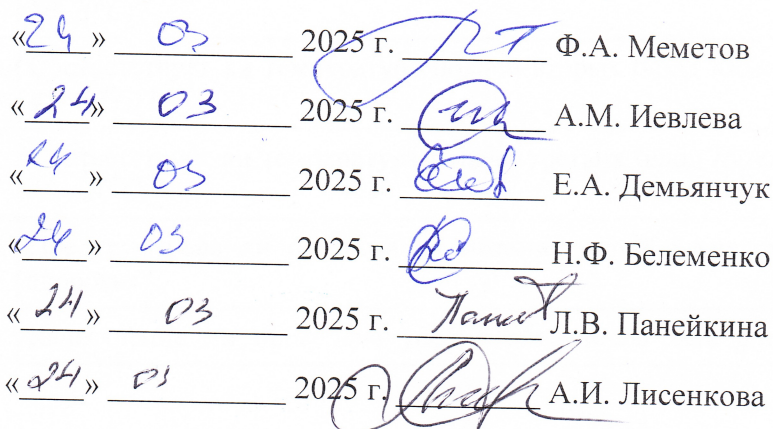 «24» 03 2025 г. Ф.А. Меметов
«24» 03 2025 г. А.М. Иевлева
«24» 03 2025 г. Е.А. Демьянчук
«24» 03 2025 г. Н.Ф. Белеменко
«24» 03 2025 г. Л.В. Панейкина
«24» 03 2025 г. А.И. Лисенкова